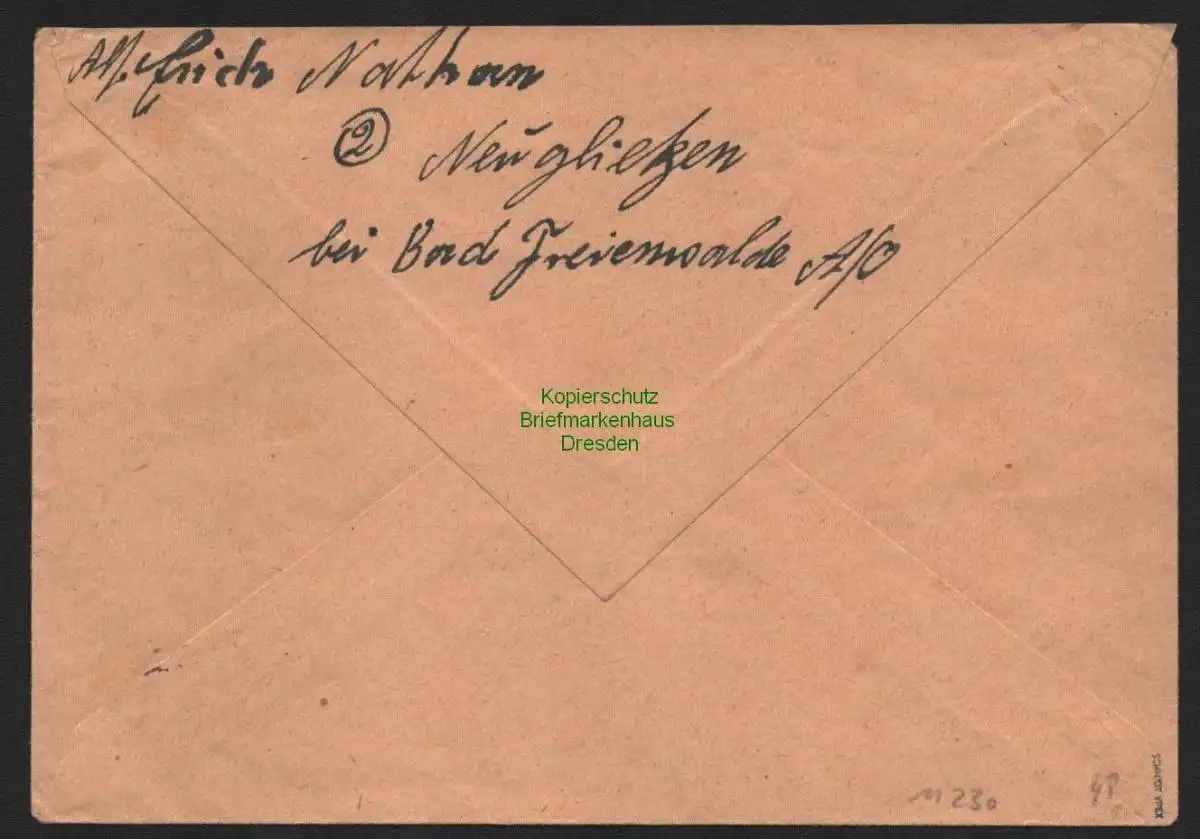 Abs. Erich Nathan
② Neuglietzen
bei Bad Freienwalde A/O
Kopierschutz
Briefmarkenhaus
Dresden
M 230